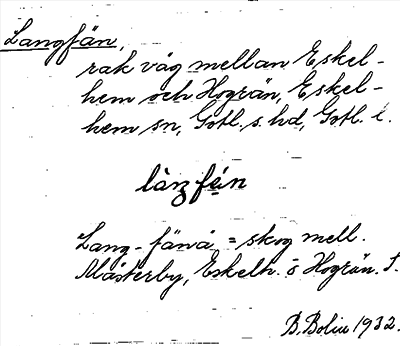 Langfän,
rak väg mellan Eskel-
hem och Hogrän, Eskel-
hem sn, Gotl. s. hd, Gotl. l.
làŋfén
Lang-fänå = skog mell.
Mästerby, Eskelh. o Hogrän. S.
B. Bolin 1932.